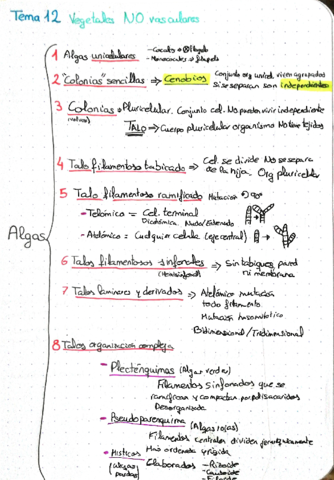 Tema 12 Vegetales NO vasculares
Algas
1 Algas unicelulares
- Cocales
- Monadales → flagelo
2 "Colonias" sencillas ⇒ Cenobios
Conjunto org unicel. viven agrupados
Si se separan son independientes
3 Colonias → Pluricelular. Conjunto cel. No pueden vivir independiente
TALO → Cuerpo pluricelular organismo No tiene tejidos
4 Talo filamentoso tabicado ⇒ Cel. se divide No se separa
de la hija. Org pluricelular
5 Talo filamentoso ramificado Mutación 90°
- Telómico = Cel. terminal
Dicotómica
- Atelómico = Cualquier celula (eje central)
6 Talos filamentosos sifonales ⇒ Sin tabiques pared
ni membrana
7 Talos laminares y derivados ⇒ Atelómico mutación
todo filamento
Bidimensional / Tridimensional
8 Talos organización compleja
- Plecténquimas (Algas verdes)
Filamentos sifonados que se
ramifican y compactan por polisacaridos
Desorganizada
- Pseudoparenquima (Algas rojas)
Filamentos centrales dividen
- Histicos Más ordenada y rígida
(algas pardas) Elaborados - Rizoide
- Cauloide
- Filoide